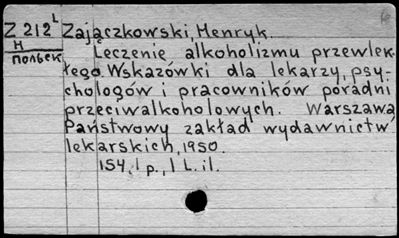 Z 212 L
H
польск
Zajączkowski, Henryk.
Leczenie alkoholizmu przewlek-
łego. Wskazówki dla lekarzy, psy-
chologów i pracowników poradni
przeciwalkoholowych. Warszawa
Państwowy zakład wydawnictw
lekarskich, 1950.
154, 1 p., 1 L. il.